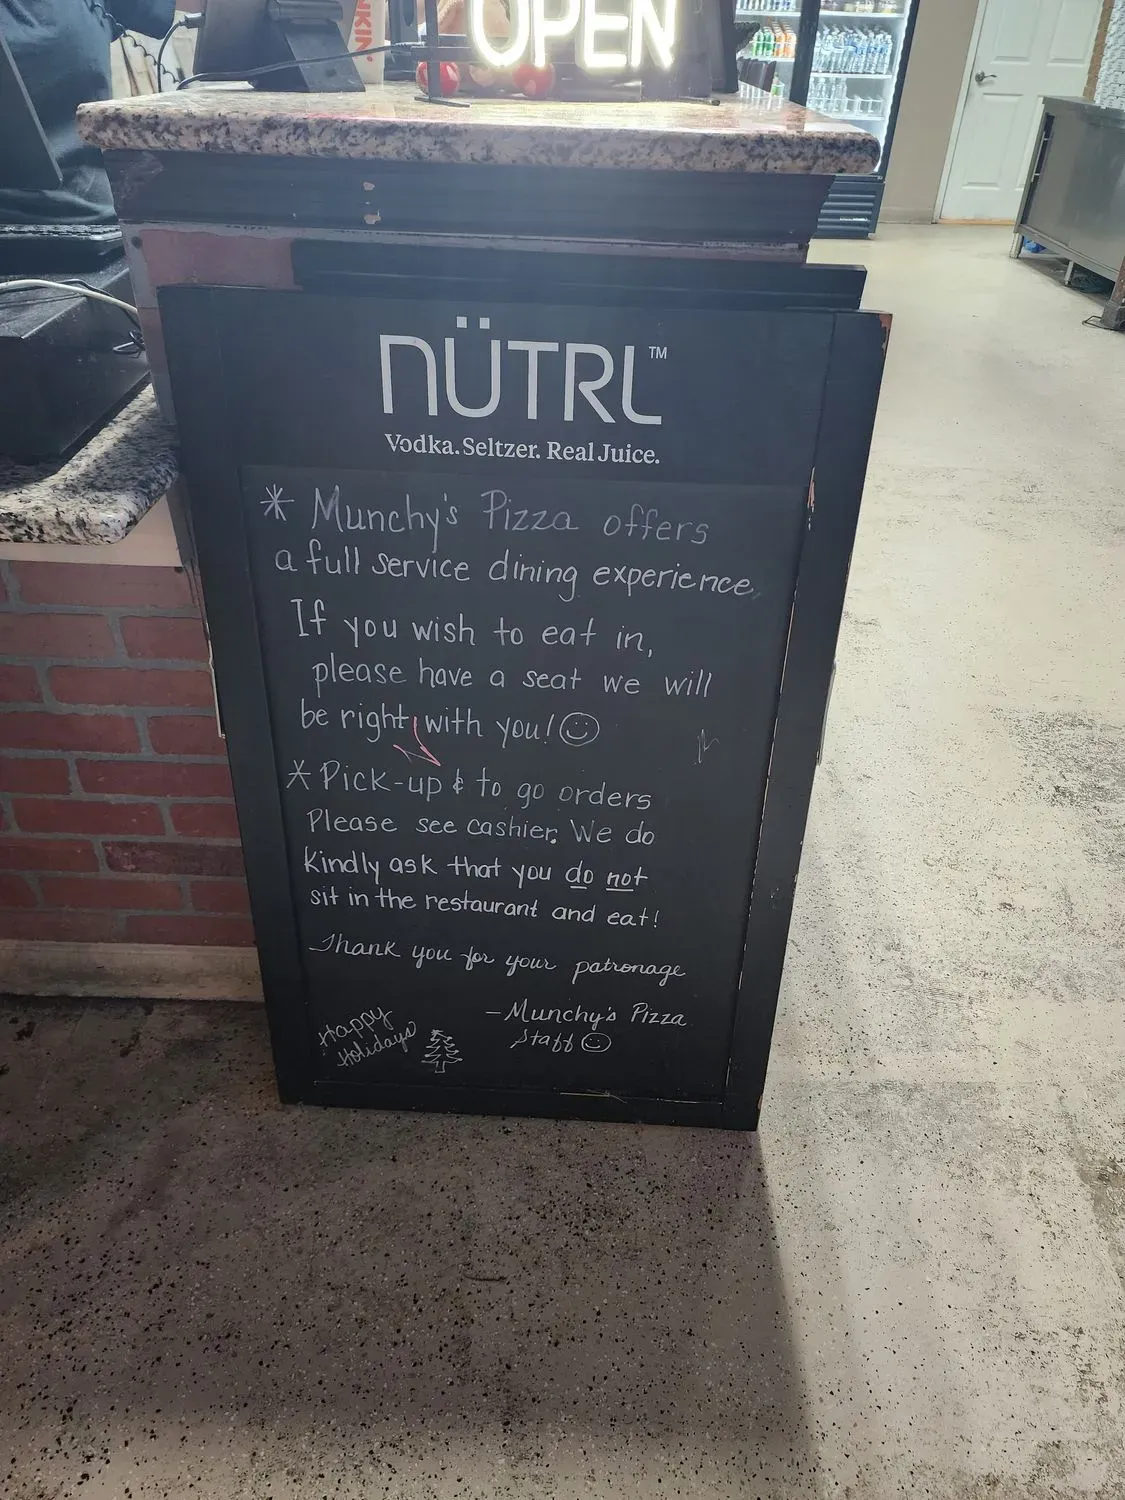 OPEN
NÜTRL™
Vodka. Seltzer. Real Juice.
* Munchy's Pizza offers
a full service dining experience.
If you wish to eat in,
please have a seat we will
be right with you! ☺
* Pick-up & to go orders
Please see cashier. We do
kindly ask that you do not
sit in the restaurant and eat!
Thank you for your patronage
- Munchy's Pizza
Staff ☺
Happy
Holidays